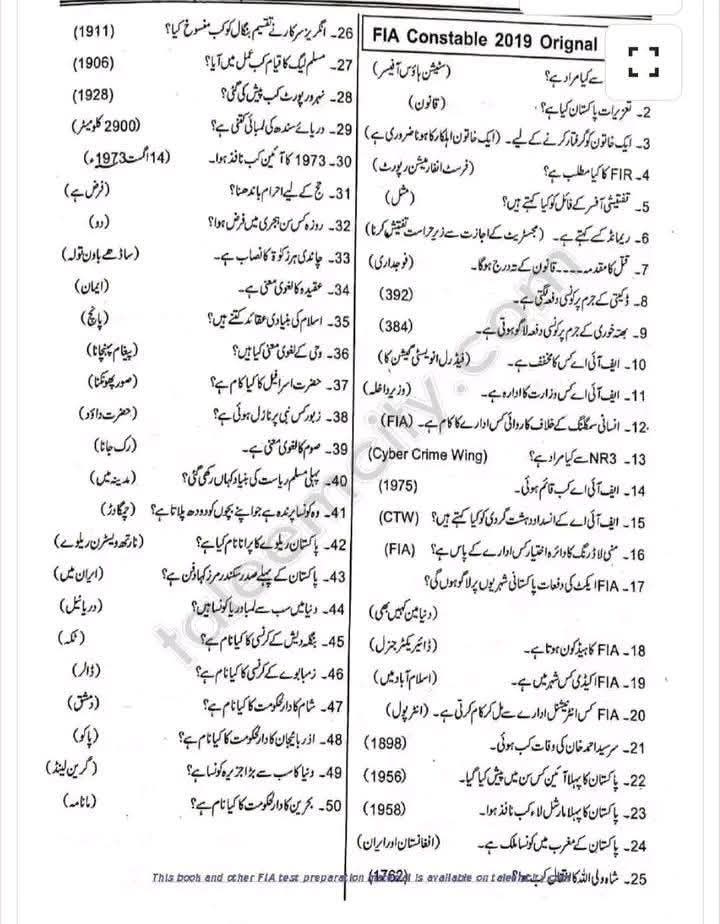 FIA Constable 2019 Orignal
سے کیا مراد ہے؟ (سٹیشن ہاؤس آفیسر)
2۔ تعزیرات پاکستان کیا ہے؟ (قانون)
3۔ ایک خاتون کو گرفتار کرنے کے لیے۔ (ایک خاتون اہلکار کا ہونا ضروری ہے)
4۔ FIR کا کیا مطلب ہے؟ (فرسٹ انفارمیشن رپورٹ)
5۔ تفتیشی آفسر کے فائل کو کیا کہتے ہیں؟ (مثل)
6۔ ریمانڈ کے کہتے ہے۔ (مجسٹریٹ کے اجازت سے زیر حراست تفتیش کرنا)
7۔ قتل کا مقدمہ ---- قانون کے تہ درج ہوگا۔ (فوجداری)
8۔ ڈکیتی کے جرم پر کونسی دفعہ لگتی ہے۔ (392)
9۔ بھتہ خوری کے جرم پر کونسی دفعہ لاگو ہوتی ہے۔ (384)
10۔ ایف آئی اے کس کا مخفف ہے۔ (فیڈرل انویسٹی گیشن کا)
11۔ ایف آئی اے کس وزارت کا ادارہ ہے۔ (وزیر داخلہ)
12۔ انسانی سمگلنگ کے خلاف کاروائی کس ادارے کا کام ہے۔ (FIA)
13۔ NR3 سے کیا مراد ہے؟ (Cyber Crime Wing)
14۔ ایف آئی اے کب قائم ہوئی۔ (1975)
15۔ ایف آئی اے کے انسداد دہشت گردی کو کیا کہتے ہیں؟ (CTW)
16۔ منی لانڈرنگ کا دائرہ اختیار کس ادارے کے پاس ہے؟ (FIA)
17۔ FIA ایکٹ کی دفعات پاکستانی شہریوں پر لاگو ہوں گی؟
(دنیا میں کہیں بھی)
18۔ FIA کا ہیڈ کون ہوتا ہے۔ (ڈائریکٹر جنرل)
19۔ FIA اکیڈمی کس شہر میں ہے۔ (اسلام آباد میں)
20۔ FIA کس انٹرنیشنل ادارے سے مل کر کام کرتی ہے۔ (انٹرپول)
21۔ سرسید احمد خان کی وفات کب ہوئی۔ (1898)
22۔ پاکستان کا پہلا آئین کس سن میں پیش کیا گیا۔ (1956)
23۔ پاکستان کا پہلا مارشل لاء کب نافذ ہوا۔ (1958)
24۔ پاکستان کے مغرب میں کونسا ملک ہے۔ (افغانستان اور ایران)
25۔ شاہ ولی اللہ کا انتقال کب ہوا؟ (1762)
26۔ انگریز سرکار نے تقسیم بنگال کو کب منسوخ کیا؟ (1911)
27۔ مسلم لیگ کا قیام کب عمل میں آیا؟ (1906)
28۔ نہرو رپورٹ کب پیش کی گئی؟ (1928)
29۔ دریائے سندھ کی لمبائی کتنی ہے؟ (2900 کلومیٹر)
30۔ 1973 کا آئین کب نافذ ہوا۔ (14 اگست 1973ء)
31۔ حج کے لیے احرام باندھنا؟ (فرض ہے)
32۔ روزہ کس سن ہجری میں فرض ہوا؟ (دو)
33۔ چاندی پر زکوٰة کا نصاب ہے۔ (ساڑھے باون تولہ)
34۔ عقیدہ کا لغوی معنی ہے۔ (ایمان)
35۔ اسلام کی بنیادی عقائد کتنے ہیں؟ (پانچ)
36۔ وحی کے لغوی معنی کیا ہیں؟ (پیغام پہنچانا)
37۔ حضرت اسرافیل کا کیا کام ہے؟ (صور پھونکنا)
38۔ زبور کس نبی پر نازل ہوئی ہے؟ (حضرت داؤد)
39۔ صوم کا لغوی معنی ہے۔ (رک جانا)
40۔ پہلی مسلم ریاست کی بنیاد کہاں رکھی گئی؟ (مدینہ میں)
41۔ وہ کونسا پرندہ ہے جو اپنے بچوں کو دودھ پلاتا ہے؟ (چمگادڑ)
42۔ پاکستان ریلوے کا پرانا نام کیا ہے؟ (نارتھ ویسٹرن ریلوے)
43۔ پاکستان کے پہلے صدر سکندر مرزا کہا دفن ہے؟ (ایران میں)
44۔ دنیا میں سب سے لمبا دریا کونسا ہیں؟ (دریا نیل)
45۔ بنگلہ دیش کے کرنسی کا کیا نام ہے؟ (ٹکہ)
46۔ زمبابوے کے کرنسی کا کیا نام ہے؟ (ڈالر)
47۔ شام کا دارلحکومت کا کیا نام ہے؟ (دمشق)
48۔ آذربائیجان کا دارلحکومت کا کیا نام ہے؟ (باکو)
49۔ دنیا کا سب سے بڑا جزیرہ کونسا ہے؟ (گرین لینڈ)
50۔ بحرین کا دارلحکومت کا کیا نام ہے؟ (مانامہ)
taleemcity.com
This book and other FIA test preparation material is available on